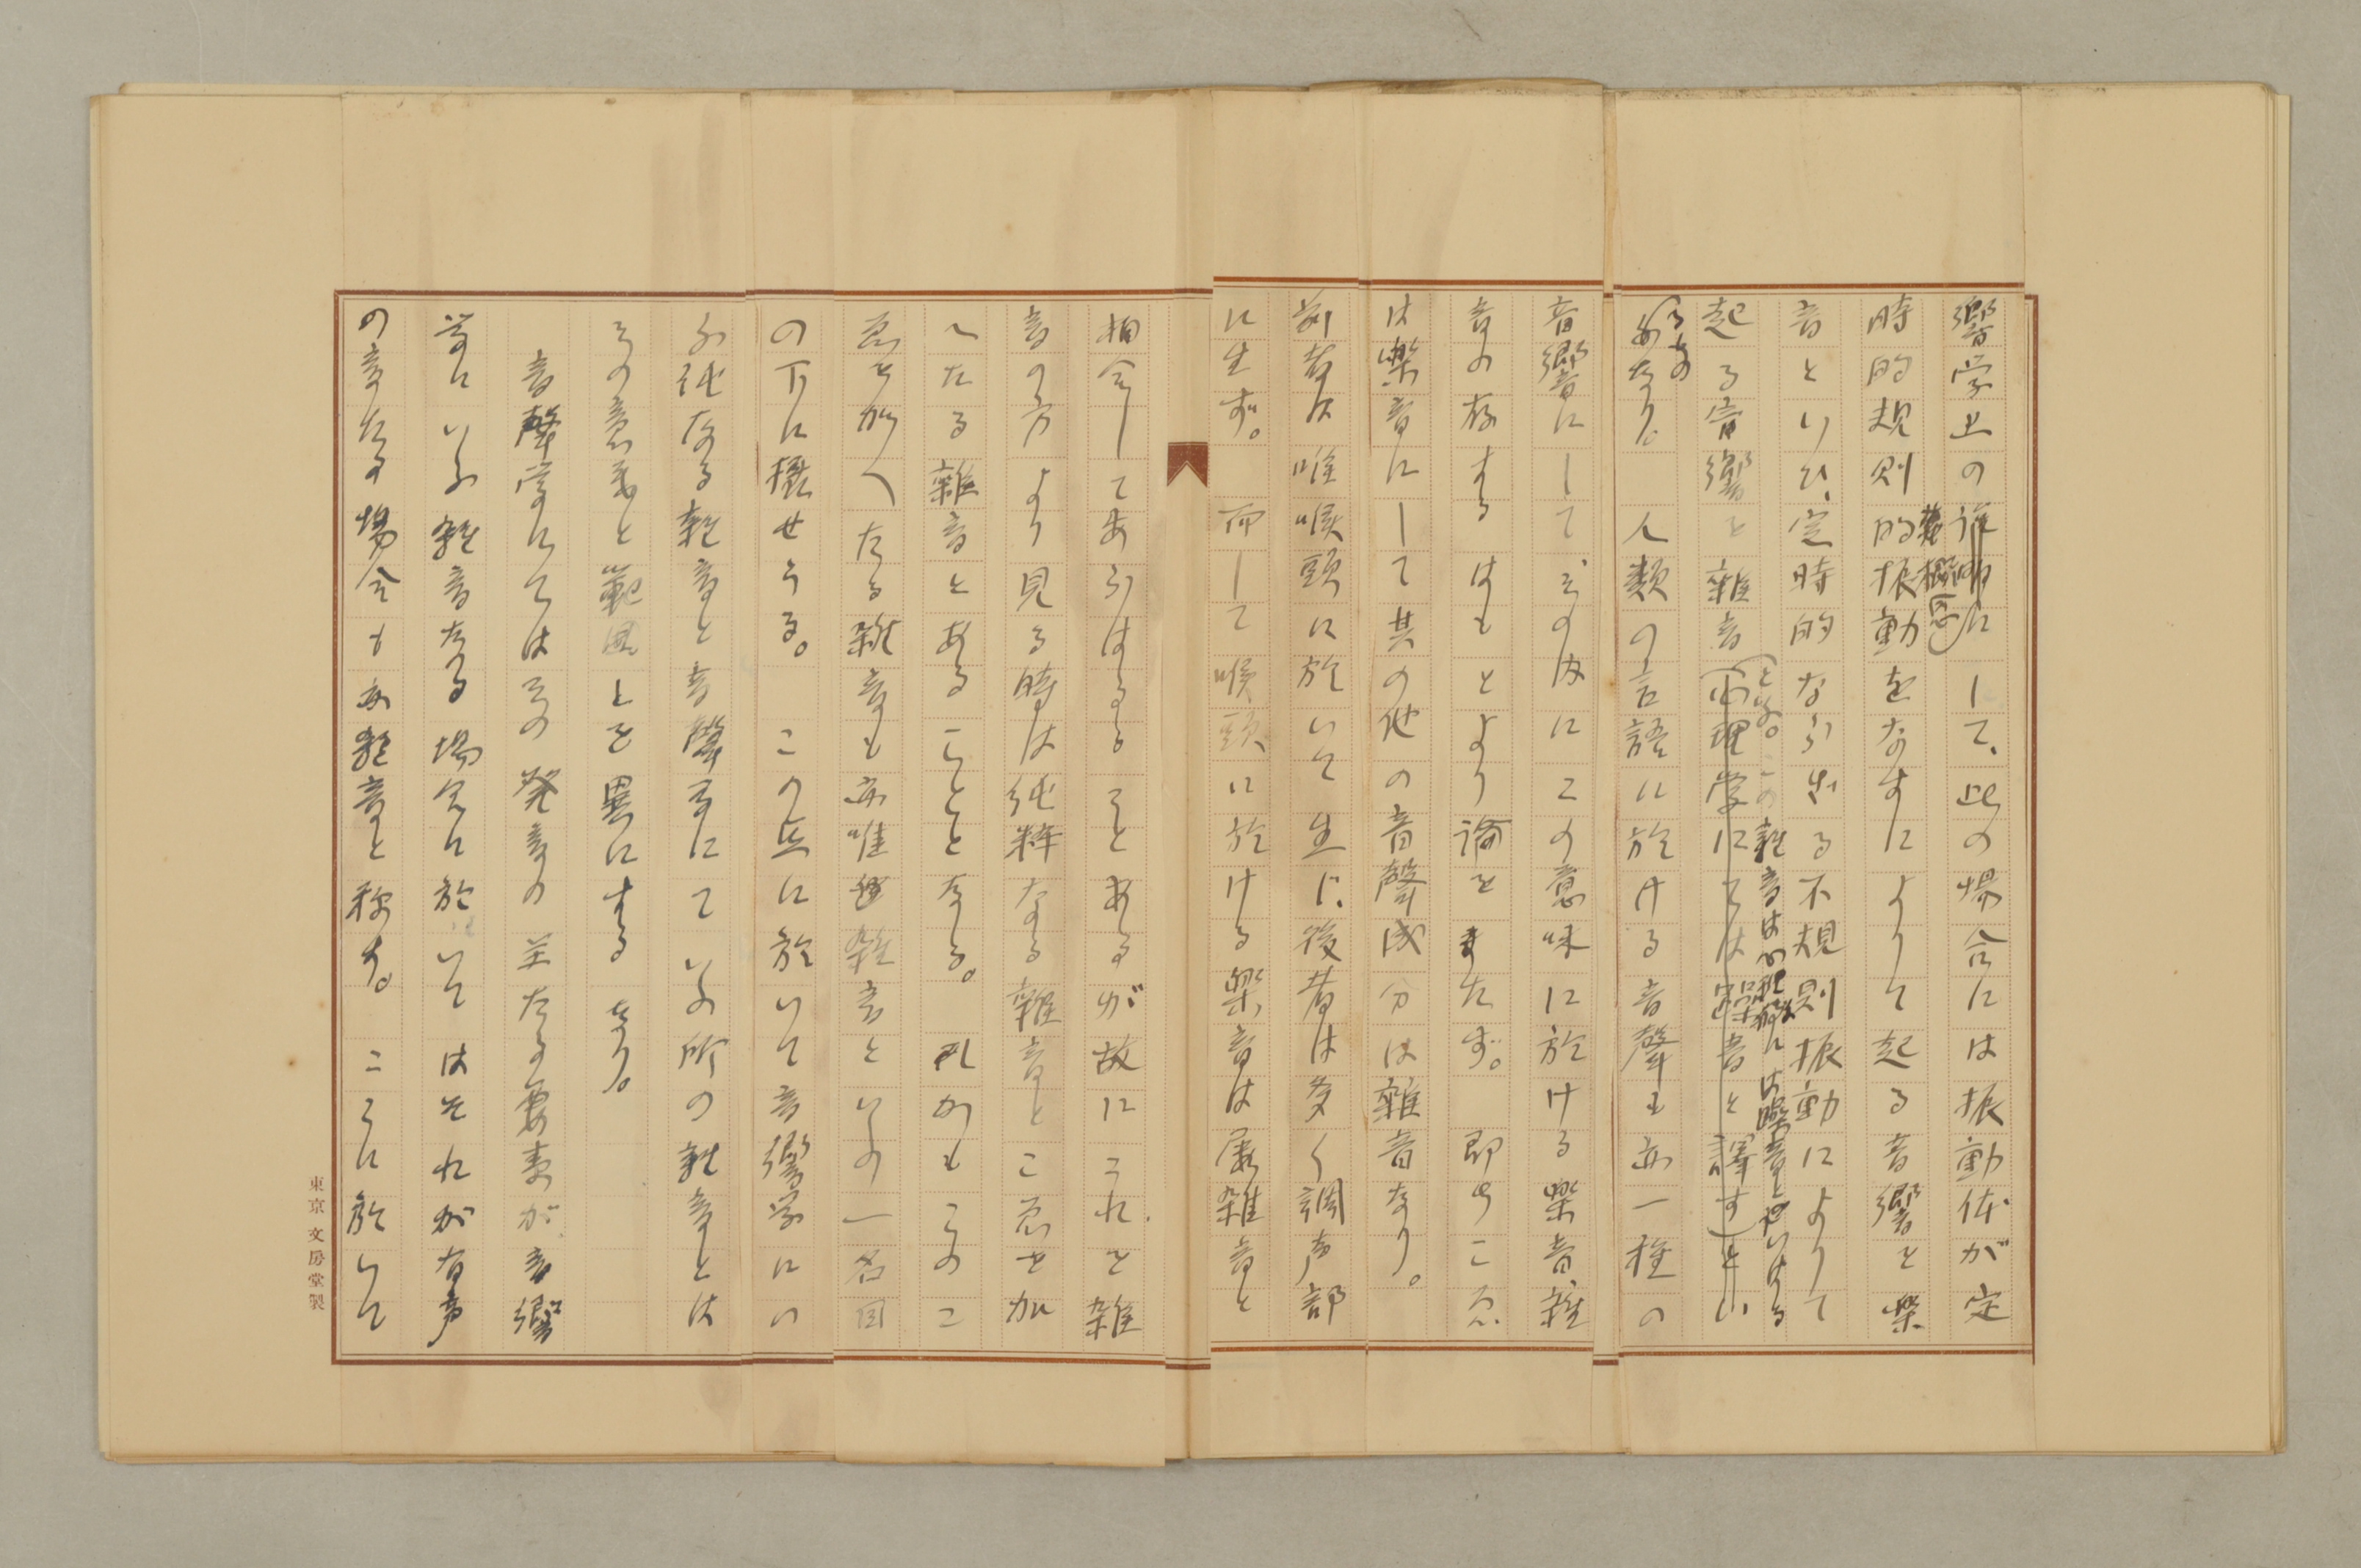 響学上の術語にして、此の場合には振動体が定
概念
時的規則的振動をなすによりて起る音響を楽
音といひ、定時的ならざる不規則振動によりて
となる。この雑音は心理学にては噪音といはる
起る音響を雑音(心理学にては噪音と譯す)とい
るもの
ふなり。人類の言語に於ける音聲も亦一種の
音響にして、その内にこの意味に於ける楽音雑
音の存するはもとより論をまたず。即ちこゑ
は樂音にして其の他の音聲成分は雑音なり。
前者は唯喉頭に於いて生じ、後者は多く調声部
に生ず。而して喉頭に於ける楽音は屡雑音と
相合してあらはるゝことあるが故にこれを雑
音の方より見る時は純粋なる雑音とこゑを加
へたる雜音とあることゝなる。しかもこのこ
ゑを加へたる雑音も亦唯雑音といふの一名目
の下に概せらる。この点に於いて音響学にい
ふ純なる雑音と音聲学にていふ所の雑音とは
その意義と範囲とを異にするなり。
音聲学にてはその発音の主たる要素が音響
学にいふ雑音なる場合に於いてはそれが有声
の音たる場合も亦雑音と称す。こゝに於いて
東京 文房堂製